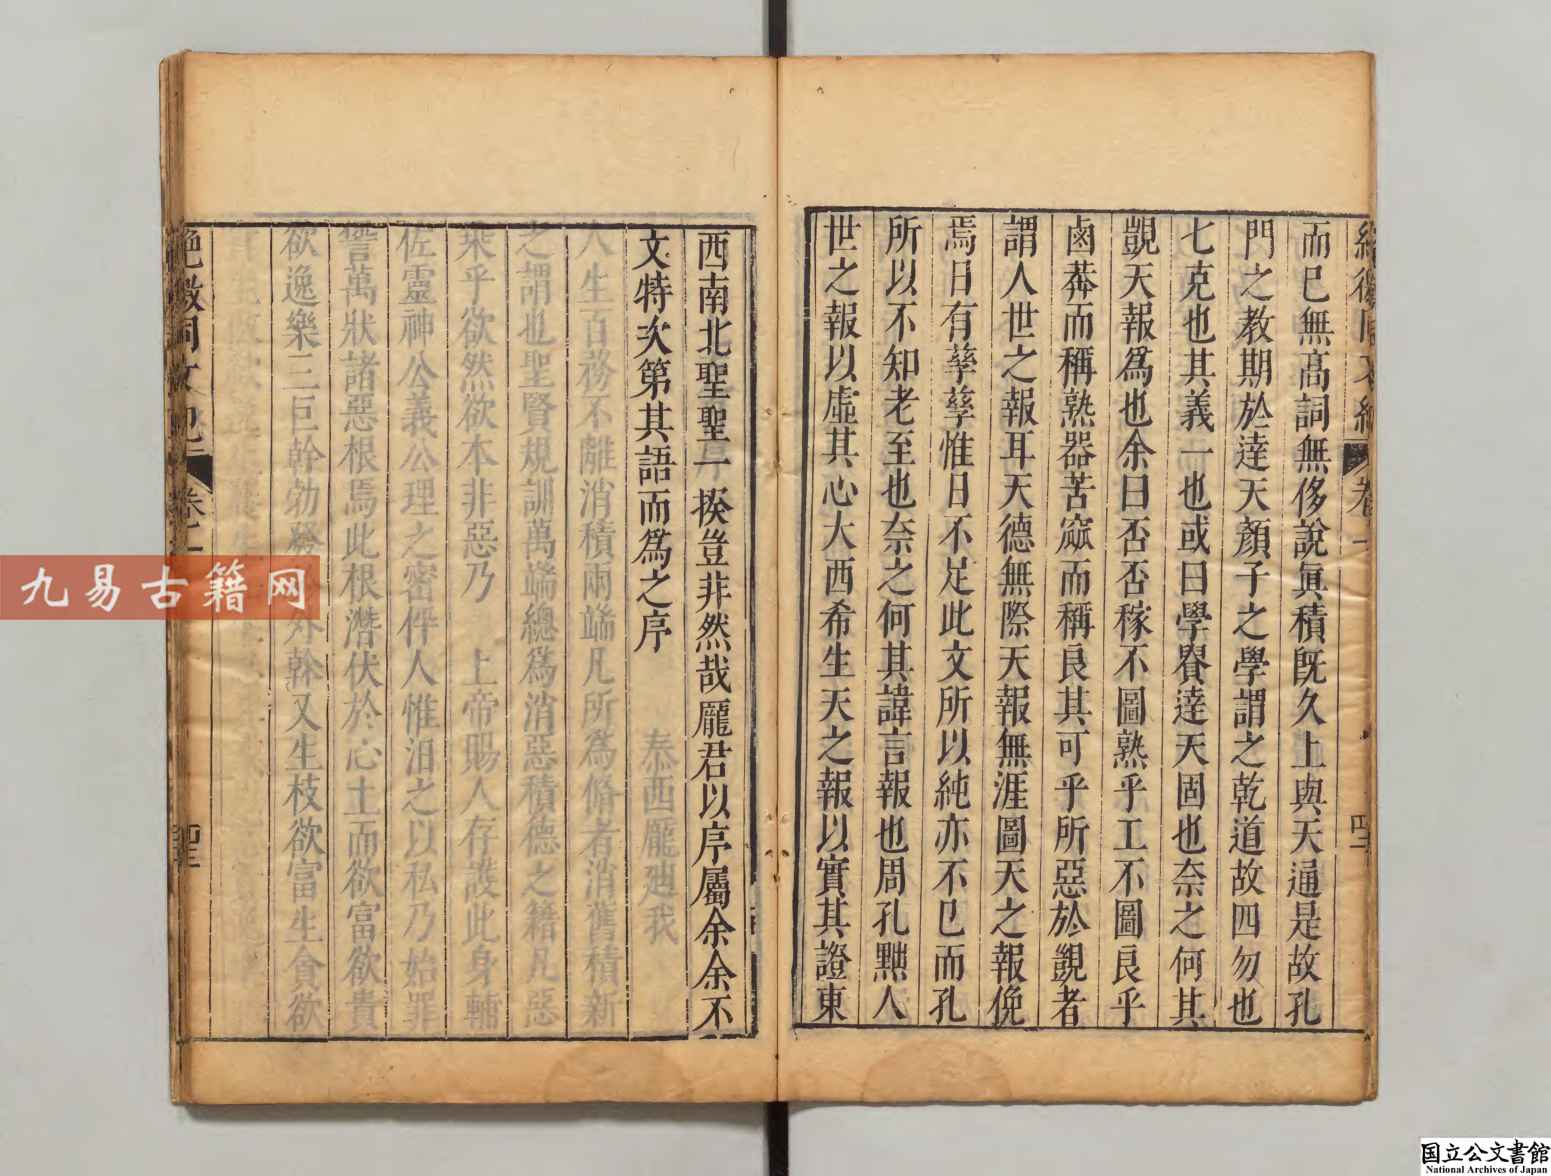 而已無高詞無侈說眞積旣久上與天通是故孔
門之教期於達天顏子之學謂之乾道故四勿也
七克也其義一也或曰學者達天固也奈之何其
覬天報爲也余曰否否稼不圖熟乎工不圖良乎
鹵莽而稱熟器苦窳而稱良其可乎所惡於覬者
謂人世之報耳天德無際天報無涯圖天之報俛
焉日有孳孳惟日不足此文所以純亦不已而孔
所以不知老至也奈之何其諱言報也周孔黜人
世之報以虛其心大西希生天之報以實其證東
西南北聖聖一揆豈非然哉龐君以序屬余余不
文特次第其語而爲之序
泰西龐廸我
人生百務不離消積兩端凡所爲脩者消舊積新
之謂也聖賢規訓萬端總爲消惡積德之籍凡惡
乘乎欲然欲本非惡乃 上帝賜人存護此身輔
佐靈神公義公理之密伻人惟汨之以私乃始罪
諐萬狀諸惡根焉此根潛伏於心土而欲富欲貴
欲逸樂三巨幹勃發於外幹又生枝欲富生貪欲
絕徼同文紀 卷一
九易古籍网
国立公文書館
National Archives of Japan